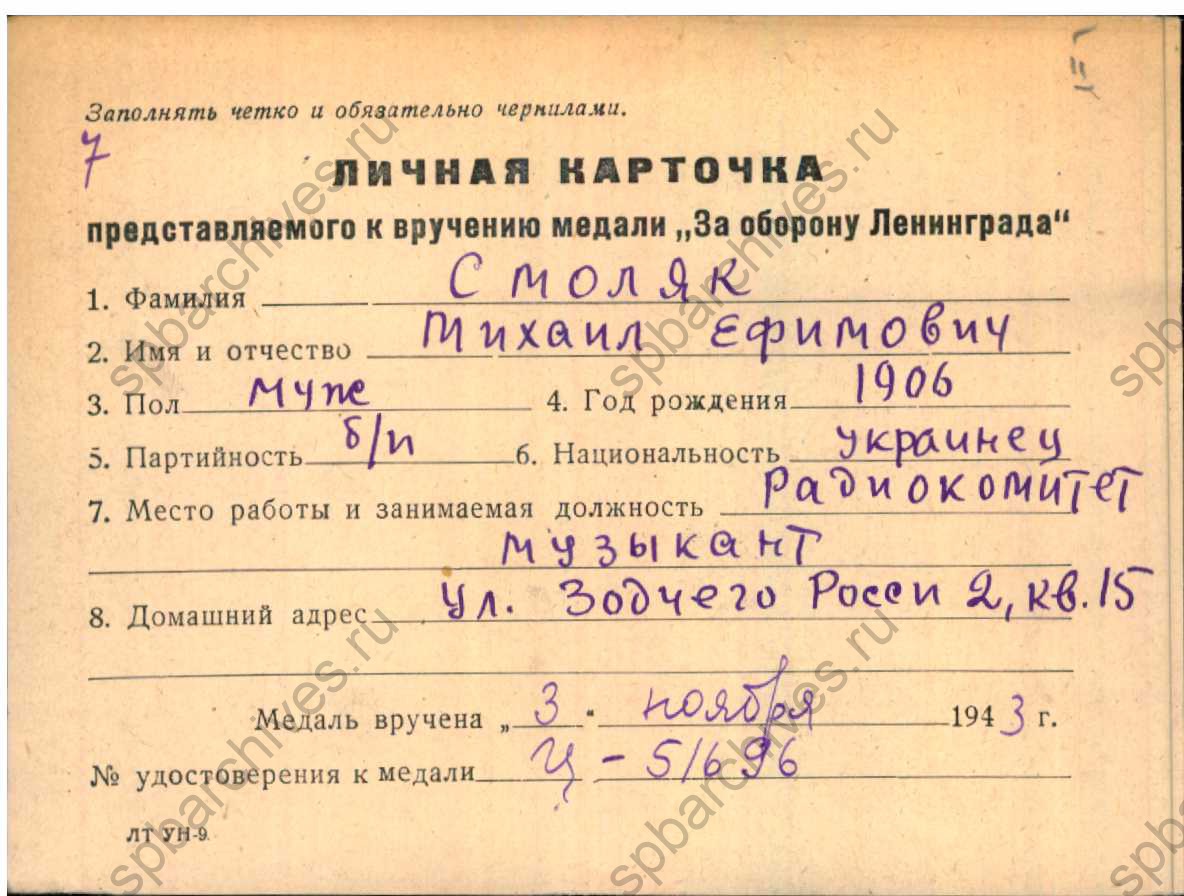 Заполнять четко и обязательно чернилами.
7
ЛИЧНАЯ КАРТОЧКА
представляемого к вручению медали „За оборону Ленинграда“
1. Фамилия Смоляк
2. Имя и отчество Михаил Ефимович
3. Пол муж 4. Год рождения 1906
5. Партийность б/п 6. Национальность украинец
7. Место работы и занимаемая должность Радиокомитет
музыкант
8. Домашний адрес ул. Зодчего Росси 2, кв. 15
Медаль вручена „3“ ноября 1943 г.
№ удостоверения к медали Ц - 51696
ЛТ УН-9.
spbarchives.ru